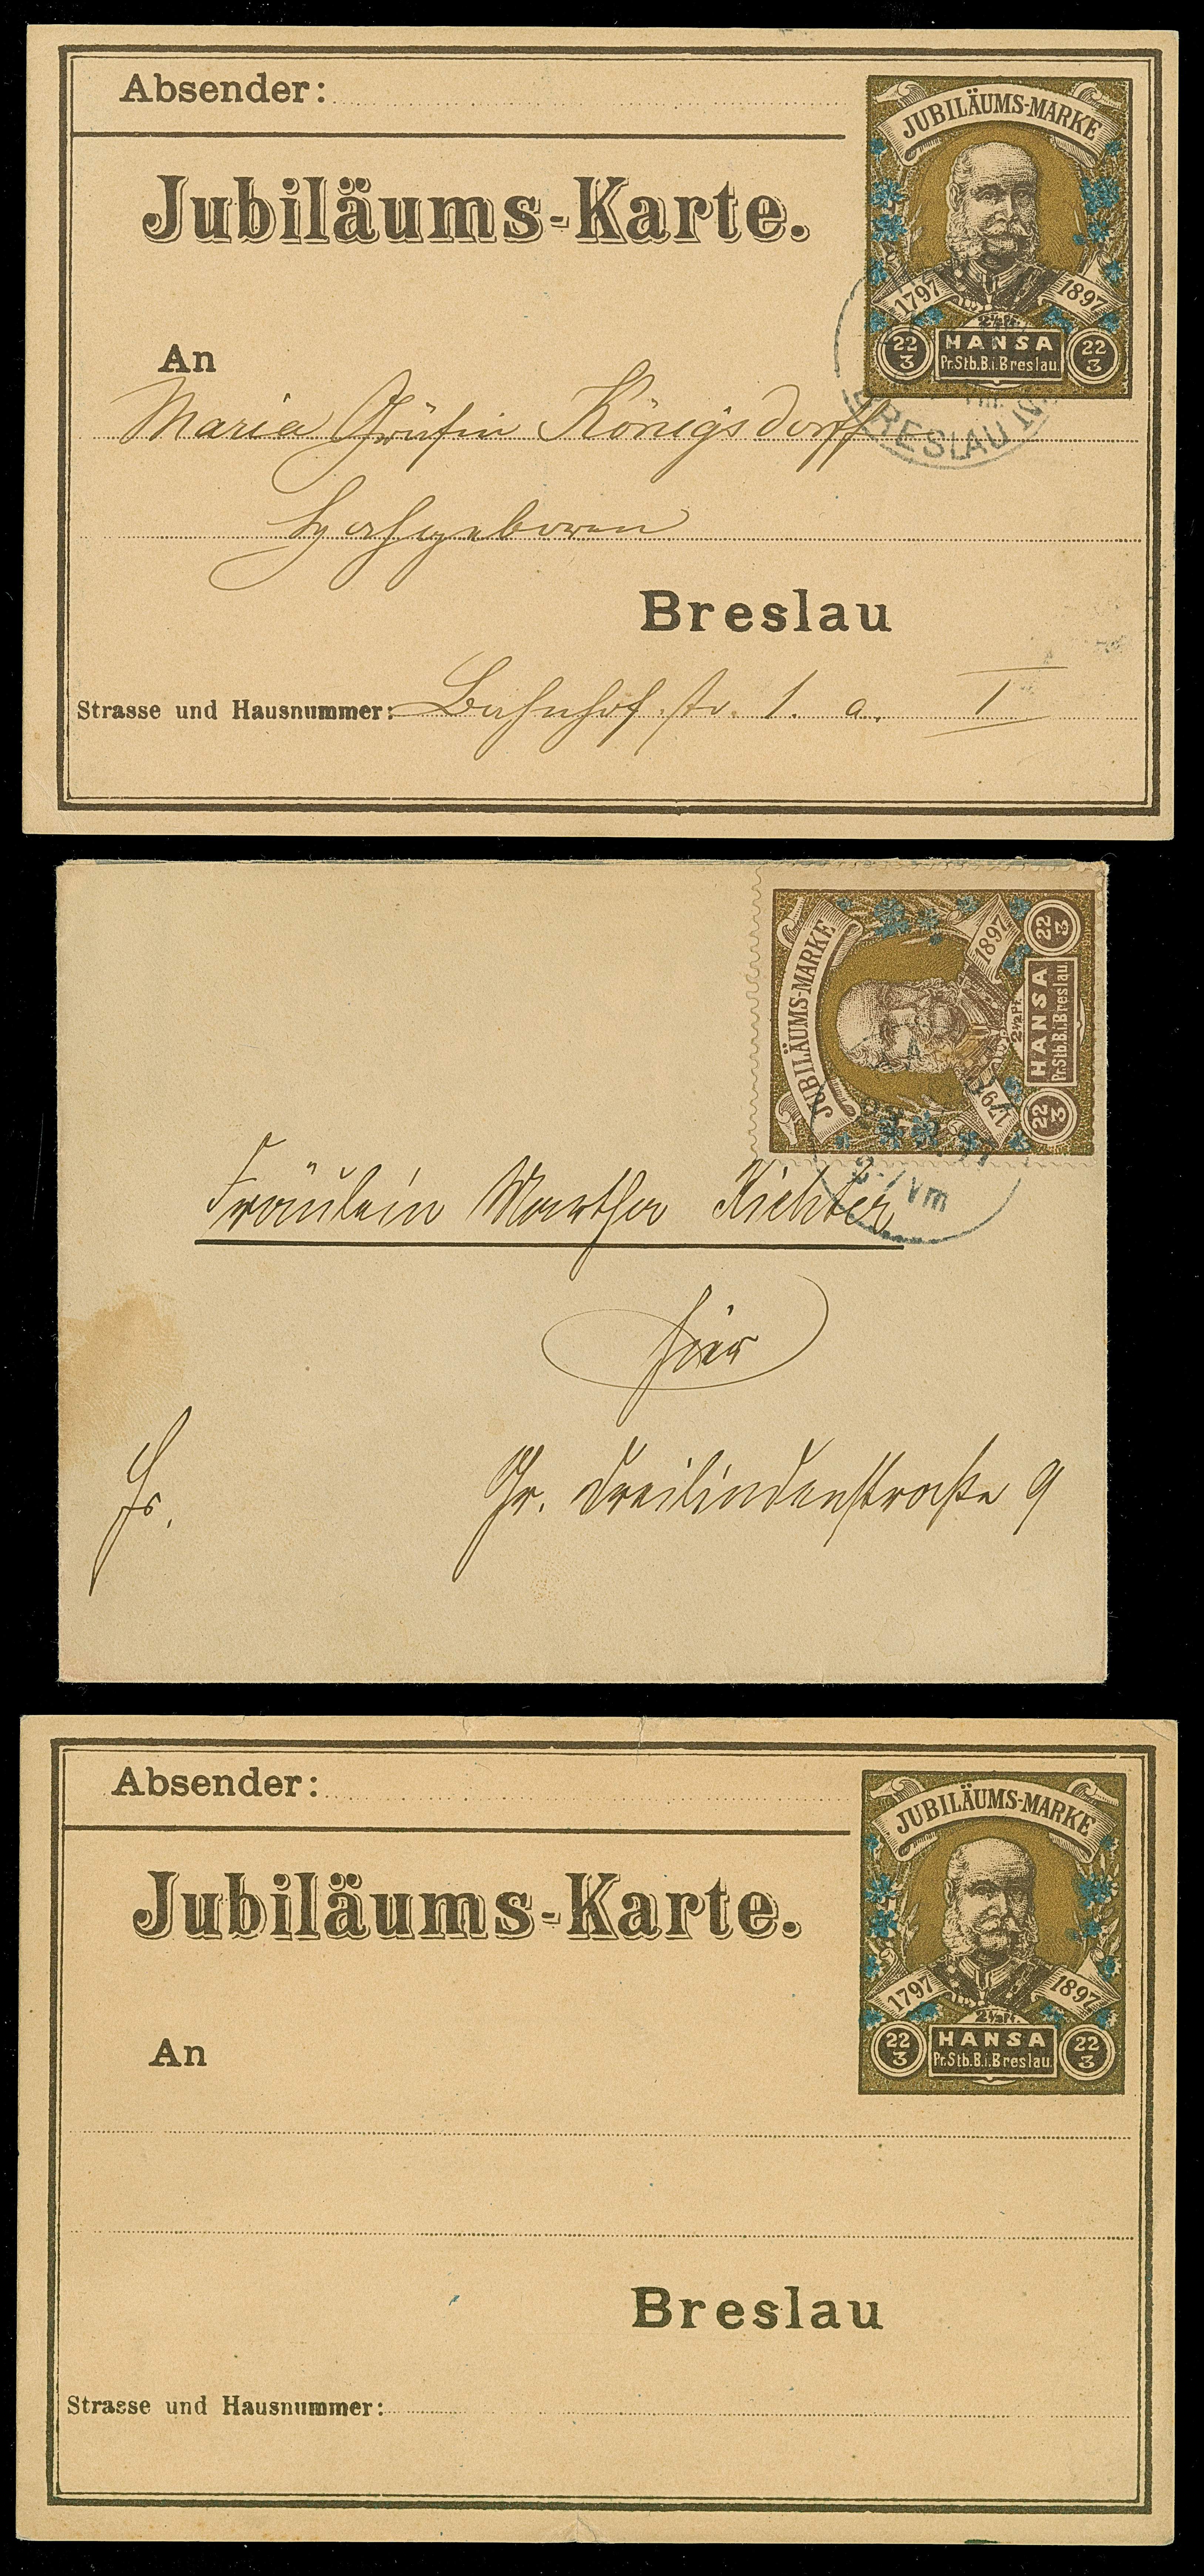 Absender:
JUBILÄUMS-MARKE
Jubiläums-Karte.
1797 1897
2½ Pf.
22/3 HANSA 22/3
Pr.Stb.B.i.Breslau.
An
Maria Gräfin Königsdorff
Hochgeboren
BRESLAU
Breslau
Strasse und Hausnummer: Bahnhofstr. 1. a. I
JUBILÄUMS-MARKE
1797 1897
2½ Pf.
22/3 HANSA 22/3
Pr.Stb.B.i.Breslau.
Vm
Fräulein Martha Richter
hier
Fr. Gr. Dreilindenstraße 9
Absender:
JUBILÄUMS-MARKE
Jubiläums-Karte.
1797 1897
2½ Pf.
22/3 HANSA 22/3
Pr.Stb.B.i.Breslau.
An
Breslau
Strasse und Hausnummer: